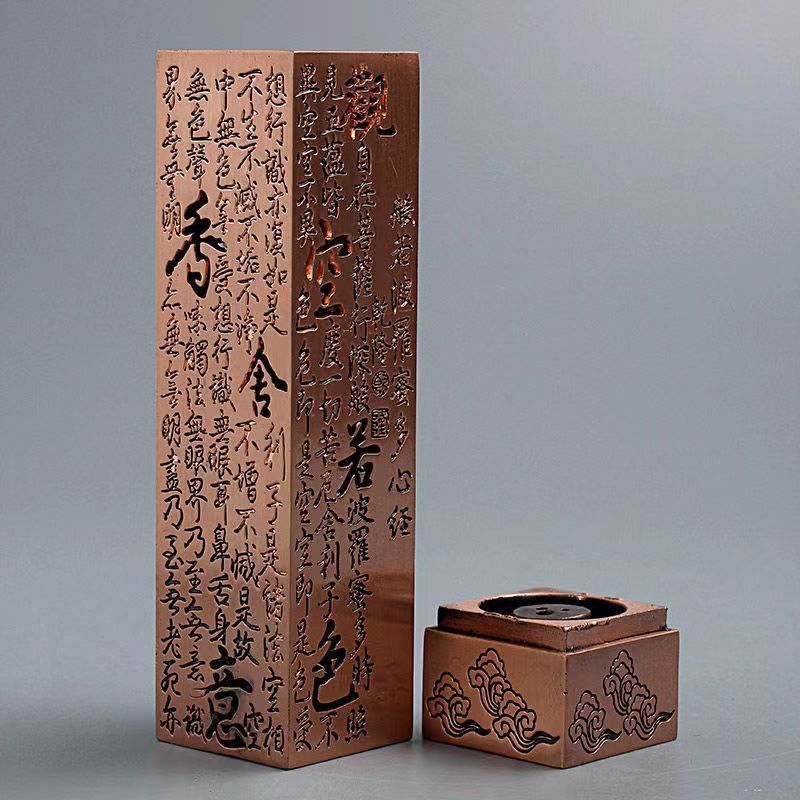 般若波羅蜜多心經
乾隆
觀自在菩薩行深般若波羅蜜多時照
見五蘊皆空度一切苦厄舍利子色不
異空空不異色色即是空空即是色受
想行識亦復如是舍利子是諸法空相
不生不滅不垢不淨不增不減是故空
中無色無受想行識無眼耳鼻舌身意
無色聲香味觸法無眼界乃至無意識
界無無明亦無無明盡乃至無老死亦